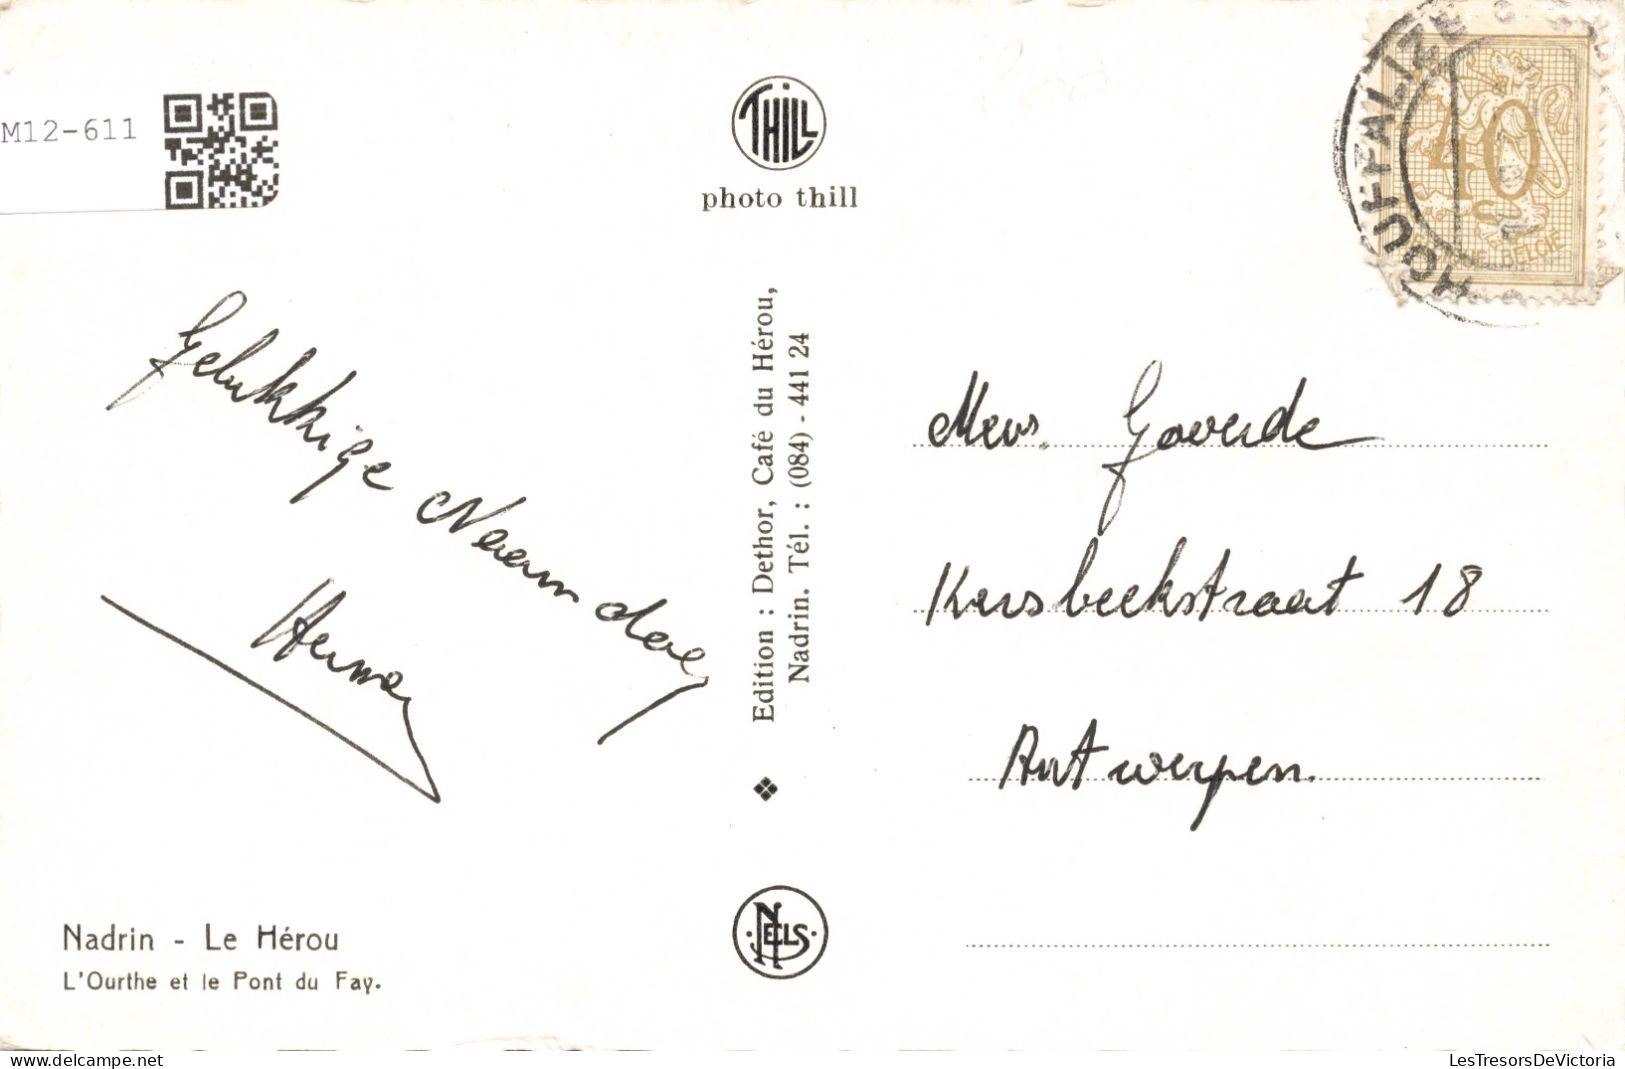 M12-611
THILL
photo thill
HOUFFALIZE
40
BELGIË
Gelukkige Naamdag
Herman
Edition : Dethor, Café du Hérou,
Nadrin. Tél. : (084) - 441 24
Mevr. Goverde
Kersbeekstraat 18
Antwerpen.
NELS
Nadrin - Le Hérou
L'Ourthe et le Pont du Fay.
LesTresorsDeVictoria